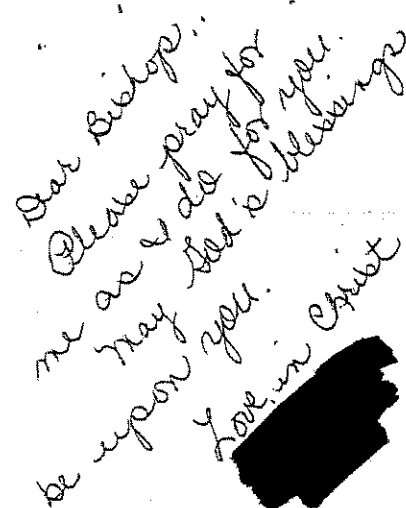 Dear Bishop..
Please pray for
me as I do for you.
May God's blessings
be upon you.
Love, in Christ